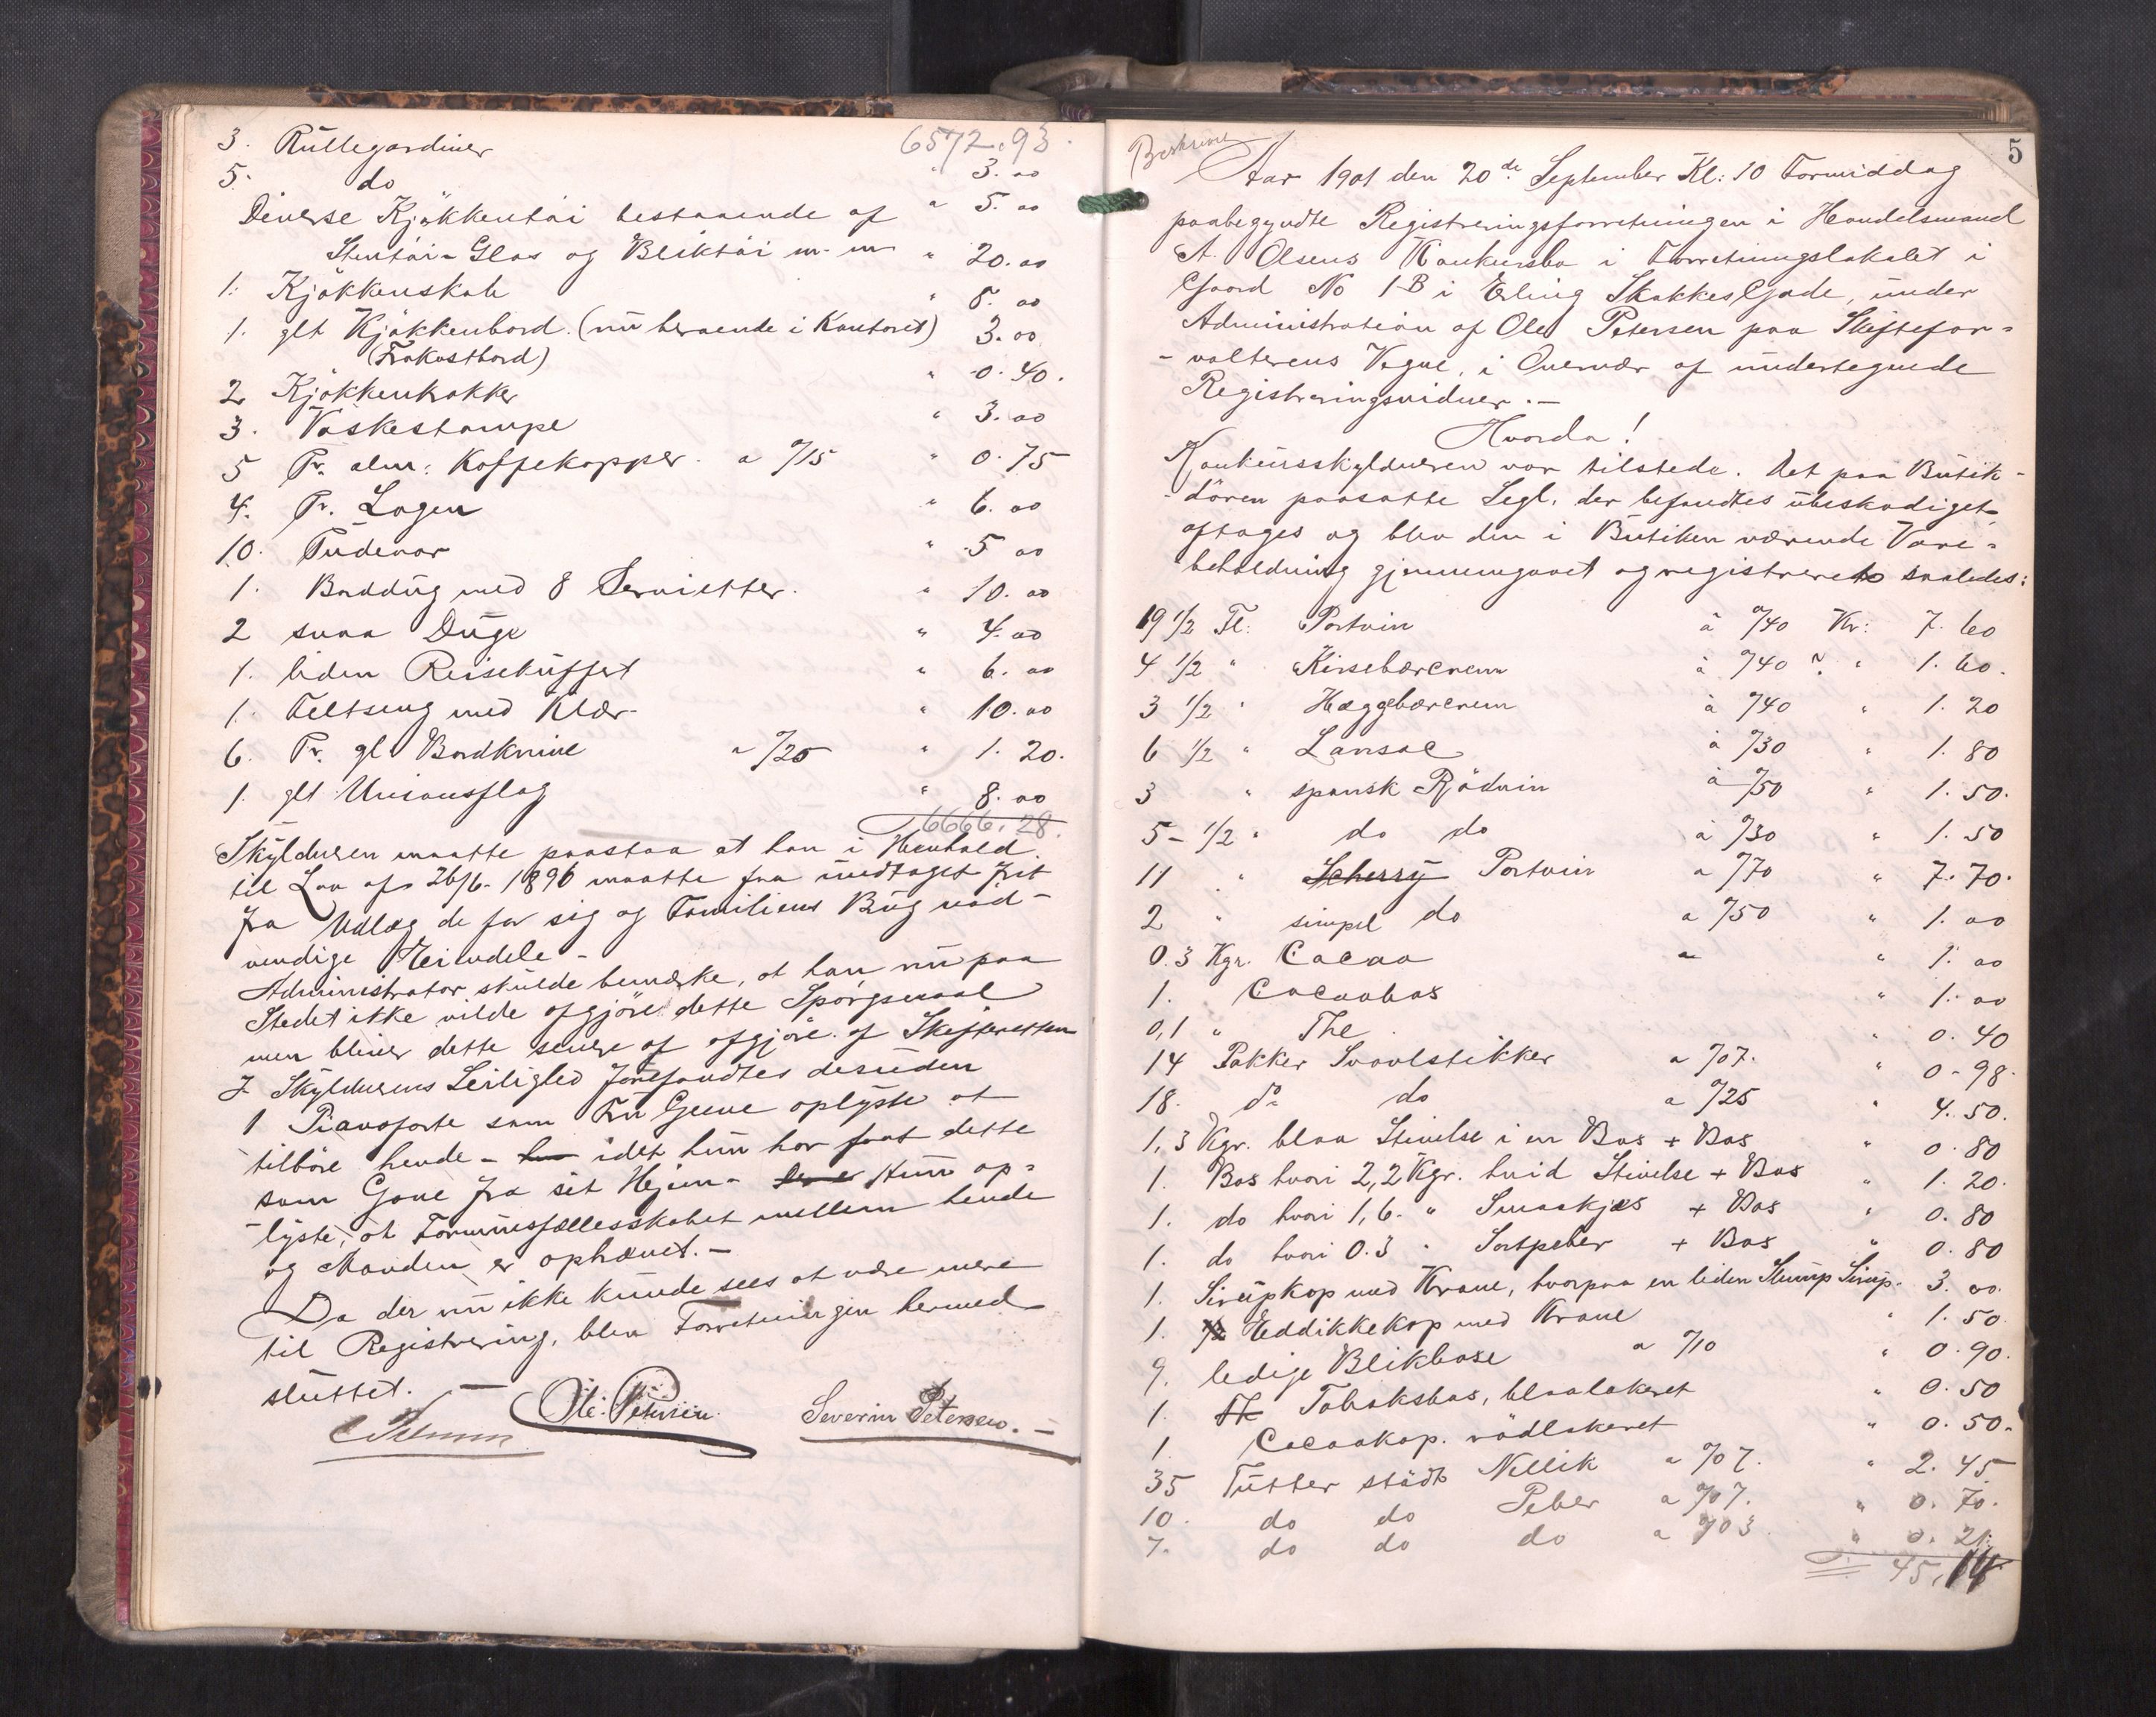 6572.93
3. Rullegardiner " 3.00
5. do " 5.00
Diverse Kjøkkentøi bestaaende af
Stentøi-Glas og Bliktøi m.m " 20.00
1. Kjøkkenskab " 8.00
1. glt Kjøkkenbord (nu beroende i Kontoret) 3.00
(Frokostbord)
2 Kjøkkenkrakker " 0.40.
3. Vaskestampe " 3.00
5 Pr. alm: Kaffekopper a "/15 " 0.75
4. Pr. Lagen " 6.00
10. Pudevar " 5 00
1. Borddug med 8 Servietter. " 10.00
2 smaa Duge " 4.00
1. liden Reisekuffert " 6.00
1. Feltseng med Klær " 10.00
6. Pr. gl Bordknive a "/20 " 1.20.
1. glt Unionsflag " 8.00
6666.28.
Skyldneren maatte paastaa at han i Henhold
til Lov af 26/6-1896 maatte faa undtaget frit
fra Udlæg de for sig og Familiens Brug nød-
vendige Eiendele-
Administrator skulde bemærke, at han nu paa
Stedet ikke vilde afgjøre dette Spørgsmaal
men bliver dette senere at afgjøre af Skifteretten
I Skyldnerens Leilighed forefandtes desuden
1 Pianoforte som Fru Greve oplyste at
tilhøre hende - hun idet hun har faat dette
som Gave fra sit Hjem- Hun op-
lyste, at Formuesfællesskabet mellem hende
og Manden er ophævet.-
Da der nu ikke kunde sees at være mere
til Registrering, blev Forretningen hermed
sluttet. -
Ole Petersen. Severin Petersen.-
5
Beskrevet
Aar 1901 den 20de September Kl: 10 Formiddag
paabegyndte Registreringsforretningen i Handelsmand
A. Olsens Konkursbo i Forretningslokalet i
Gaard No 1B i Erling SkakkesGade, under
Administration af Ole Petersen paa Skiftefor-
-valterens Vegne, i Overvær af undertegnede
Registreringsvidner.-
Hvorda!
Konkursskyldneren var tilstede. Det paa Butik-
-døren paasatte Segl, der befandtes ubeskadiget
aftoges og blev den i Butiken værende Vare-
beholdning gjennemgaaet og registreret saaledes:
19 1/2 Fl: Portvin à "/40 Kr: 7.60
4 1/2 " Kirsebærcrem à "/40 " 1.60.
3 1/2 " Hæggebærcrem à "/40 " 1.20
6 1/2 " Larsac à "/30 " 1.80
3 " spansk Rødvin à "/50 " 1.50.
5-1/2 " do do à "/30 " 1.50
11 " Scherry Portvin a "/70 " 7.70.
2 " simpel do a "/50 " 1.00
0.3 Kgr. Cacao a " 1.00
1. Cacaobos " 1.00
0,1 " The " 0.40
14 Pakker Svovlstikker a "/07. " 0-98
18. do do a "/25 " 4.50.
1,3 Kgr. blaa Stivelse i en Bos + Bos " 0.80
1. Bos hvori 2,2 Kgr. hvid Stivelse + Bos " 1.20.
1. do hvori 1,6. " Smaakjæs + Bos " 0.80
1. do hvori 0.3 " Sortpeber + Bos " 0.80
1. Sirupkop med Krane, hvorpaa en liden Slump Sirup. 3.00.
1. Eddikkekop med Krane " 1.50
9. ledige Blikbose a "/10 " 0.90.
1. Th Tobaksbos, blaalakeret " 0.50
1. Cacaokop. rødlakeret " 0.50.
35 Tutter stødt Nellik a "/07. " 2.45
10. do do Peber a "/07. " 0.70.
7. do do do a "/03. " 0.21.
45,14